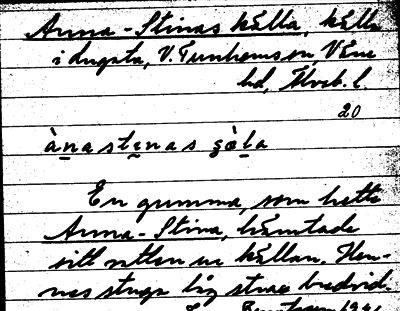 Anna-Stinas källa, källa
i dugsta, V. Tunhems sn, Väne
hd, Älvsb. l.
20
ànastenas ʂὰla
En gumma, som hette
Anna-Stina, hämtade
sitt vatten ur källan. Hen-
nes stuga låg strax bredvid.